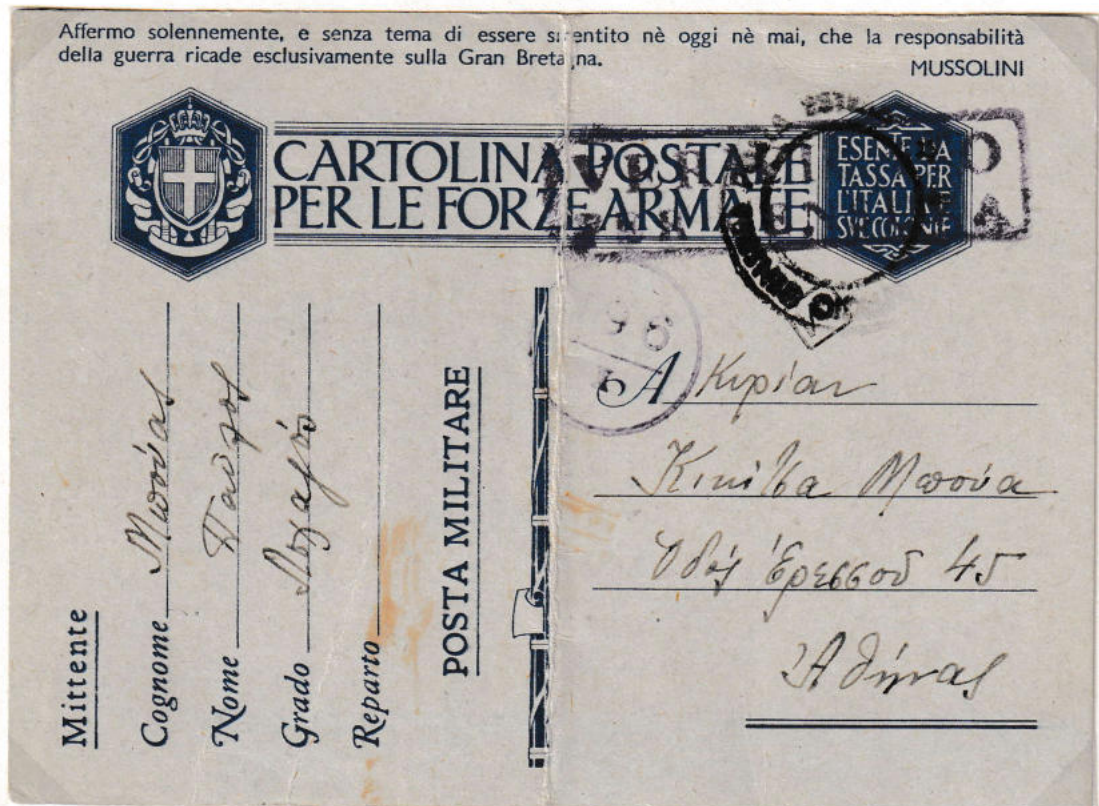 Affermo solennemente, e senza tema di essere smentito nè oggi nè mai, che la responsabilità
della guerra ricade esclusivamente sulla Gran Bretagna.
MUSSOLINI
CARTOLINA POSTALE
PER LE FORZE ARMATE
ESENTE DA
TASSA PER
L'ITALIA
SUE COLONIE
Mittente
Cognome Μπούας
Nome Παῦλος
Grado
Reparto
POSTA MILITARE
A Κυρίαν
Κικίτσα Μπούα
Ὁδός Ἐρεσσοῦ 45
Ἀθήνας